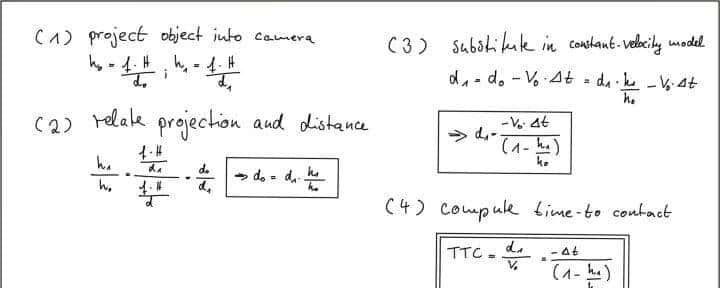 (1) project object into camera
h₀ = f · H / d₀ ; h₁ = f · H / d₁
(2) relate projection and distance
h₁ / h₀ = (f · H / d₁) / (f · H / d) = d₀ / d₁ ⇒ d₀ = d₁ · h₁ / h₀
(3) substitute in constant-velocity model
d₁ = d₀ - V₀ · Δt = d₁ · h₁ / h₀ - V₀ · Δt
⇒ d₁ = -V₀ · Δt / (1 - h₁ / h₀)
(4) compute time-to contact
TTC = d₁ / V₀ = -Δt / (1 - h₁ /